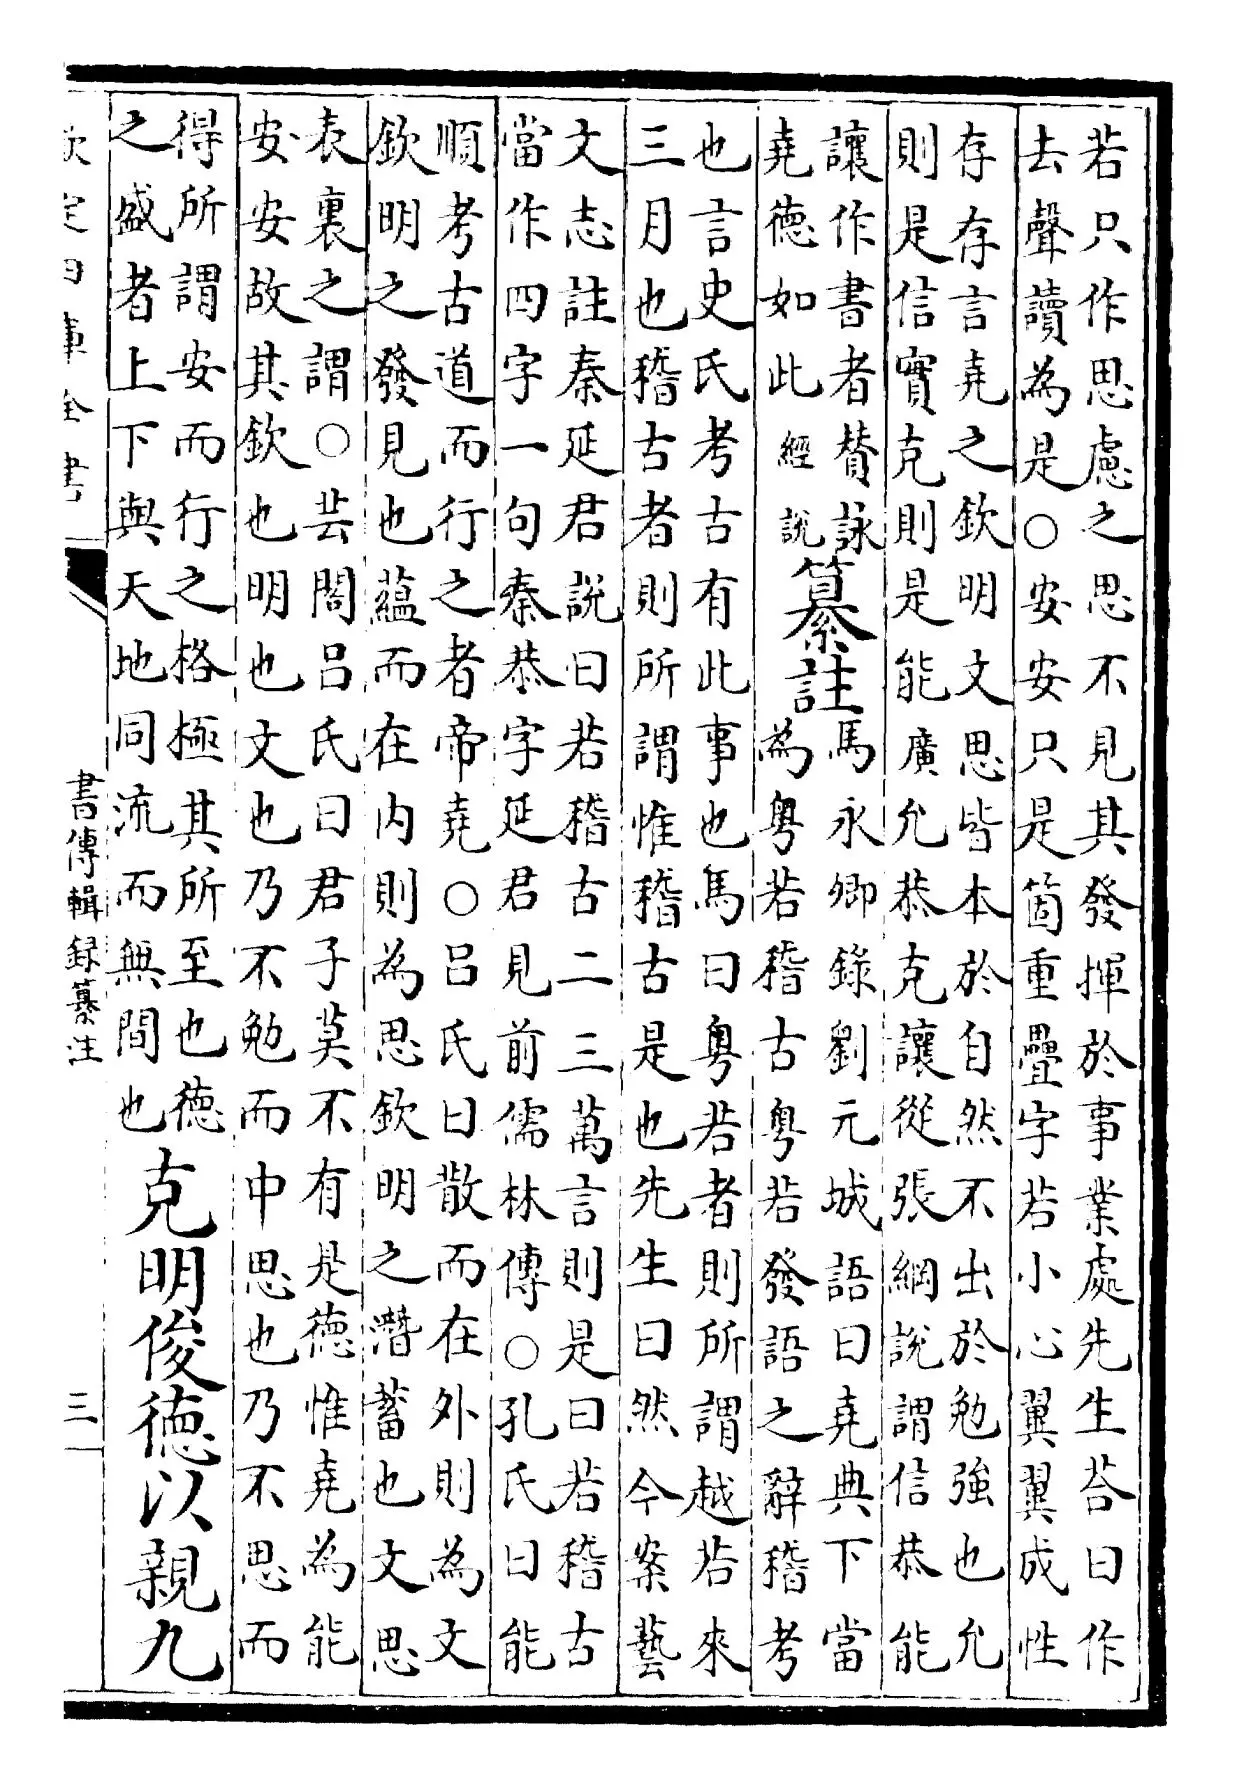 若只作思慮之思不見其發揮於事業處先生荅曰作
去聲讀為是○安安只是箇重疊字若小心翼翼成性
存存言堯之欽明文思皆本於自然不出於勉強也允
則是信實克則是能廣允恭克讓從張綱說謂信恭能
讓作書者賛詠
堯德如此經說
纂註
馬永卿錄劉元城語曰堯典下當
為粤若稽古粤若發語之辭稽考
也言史氏考古有此事也馬曰粤若者則所謂越若來
三月也稽古者則所謂惟稽古是也先生曰然今案藝
文志註秦延君說曰若稽古二三萬言則是曰若稽古
當作四字一句秦恭字延君見前儒林傳○孔氏曰能
順考古道而行之者帝堯○吕氏曰散而在外則為文
欽明之發見也蘊而在内則為思欽明之潛蓄也文思
表裏之謂○芸閣吕氏曰君子莫不有是德惟堯為能
安安故其欽也明也文也乃不勉而中思也乃不思而
得所謂安而行之格極其所至也德
之盛者上下與天地同流而無間也
克明俊德以親九
欽定四庫全書
書傳輯録纂注
三